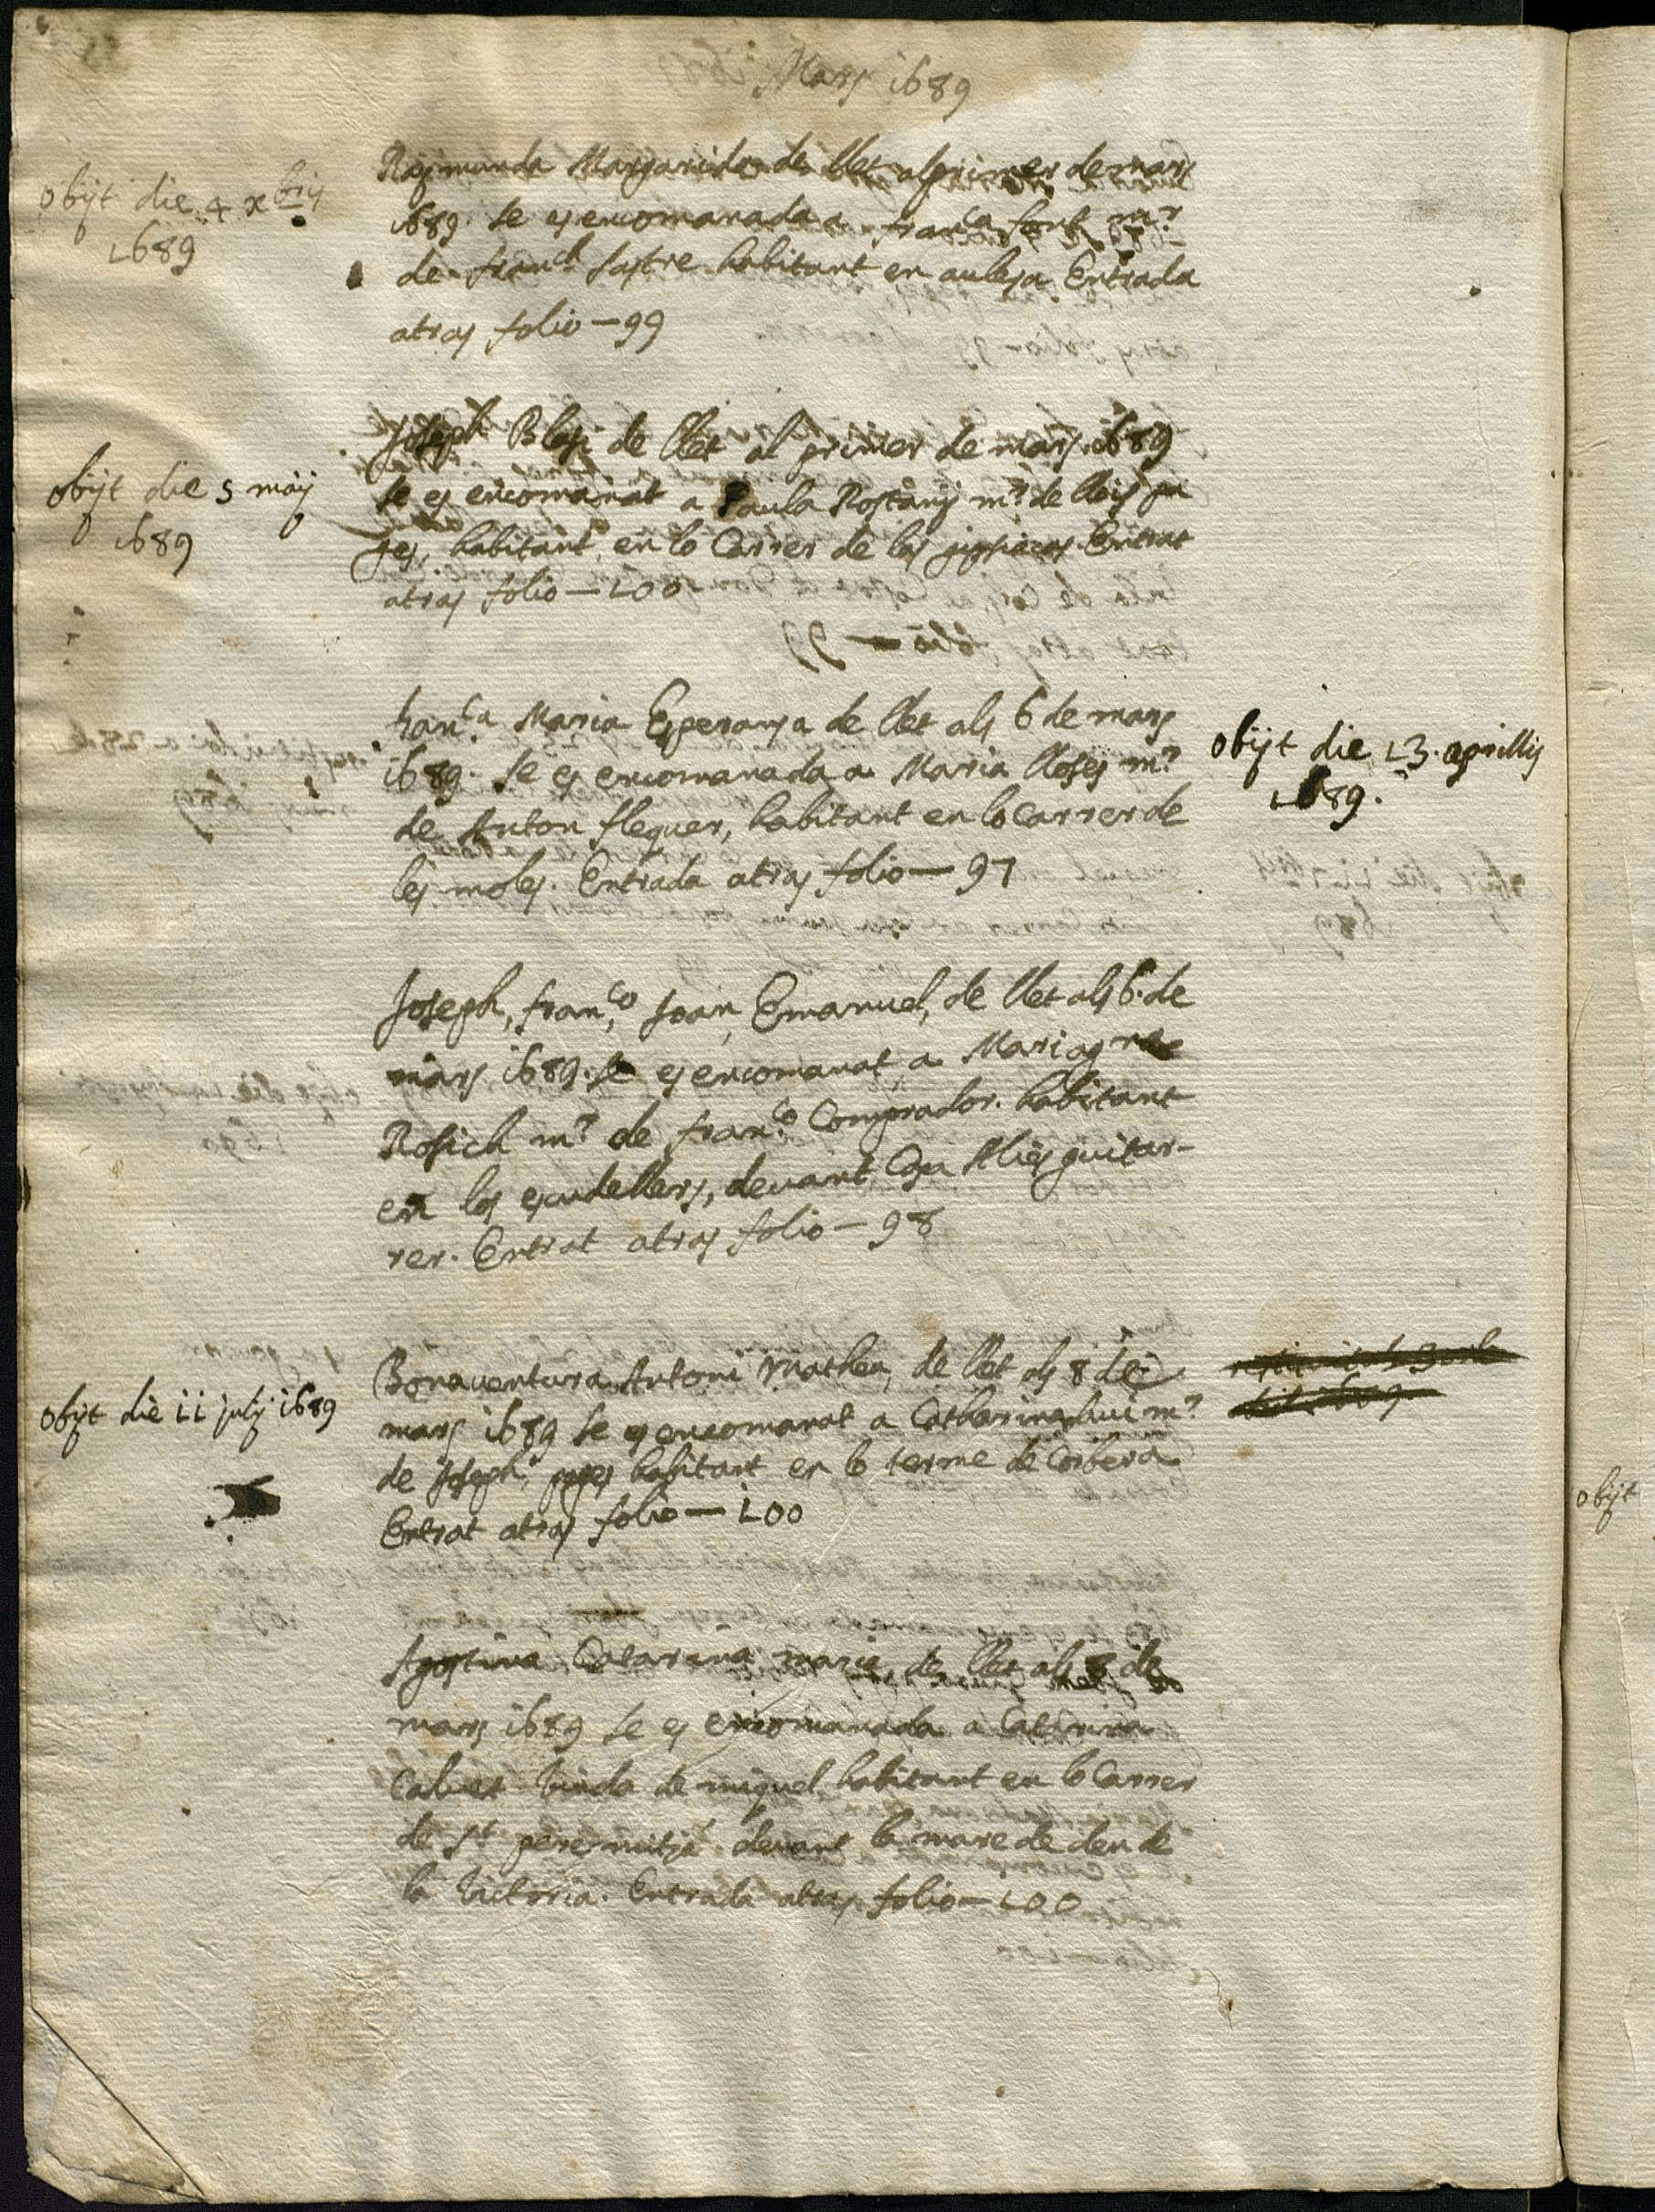 Mars 1689
obijt die 4 xbris
1689
Raymunda Margarida de llet al primer de mars
1689. se es encomanada a franca font mr
de franch sastre habitant en aulesa Entrada
atras folio — 99
Joseph Blasi de llet al primer de mars 1689
se es encomanat a Paula Rostany mr de lluis pa
ges, habitant en lo Carrer de las Entrat
atras folio — 100
obijt die 5 maij
1689
franca Maria Esperansa de llet als 6 de mars
1689. se es encomanada a Maria lloses mr
de Anton flequer, habitant en lo Carrer de
les moles. Entrada atras folio — 97
obijt die 13. aprillis
1689.
Joseph, franco, Joan, Emanuel, de llet als 6. de
mars 1689. se es encomanat a Mariagna
Rosich mr de franco Comprador. habitant
en los escudellers, devant Casa guitar-
rer. Entrat atras folio — 98
Bonaventura Antoni Matheu, de llet als 8 de
mars 1689 se es encomanat a Catharina mr
de Joseph pages habitant en lo terme de Corbera
Entrat atras folio — 100
obijt die 11 julij 1689
Agostina Catarina maria, de llet als 8 de
mars 1689 se es encomanada a Catarina
Calvet viuda de miquel habitant en lo Carrer
de St peremitja devant la mare de deu de
la victoria. Entrada atras folio — 100
obijt